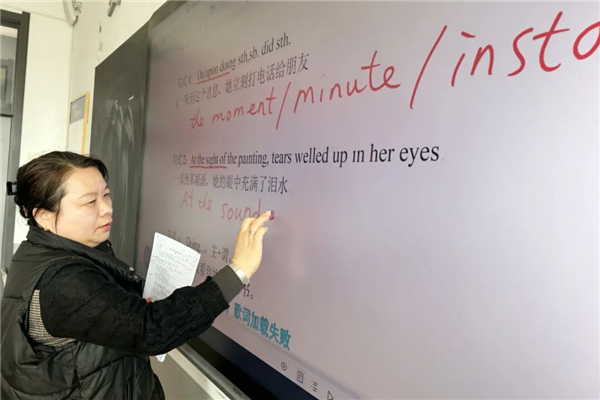 句式1: On/upon doing sth.sb. did sth.
一听到这个消息，她立刻打电话给朋友
the moment/minute/insta
句式2: At the sight of the painting, tears welled up in her eyes
一看到那幅画，她的眼中充满了泪水
At the sound o
Doing
主+谓
书。
歌词加载失败